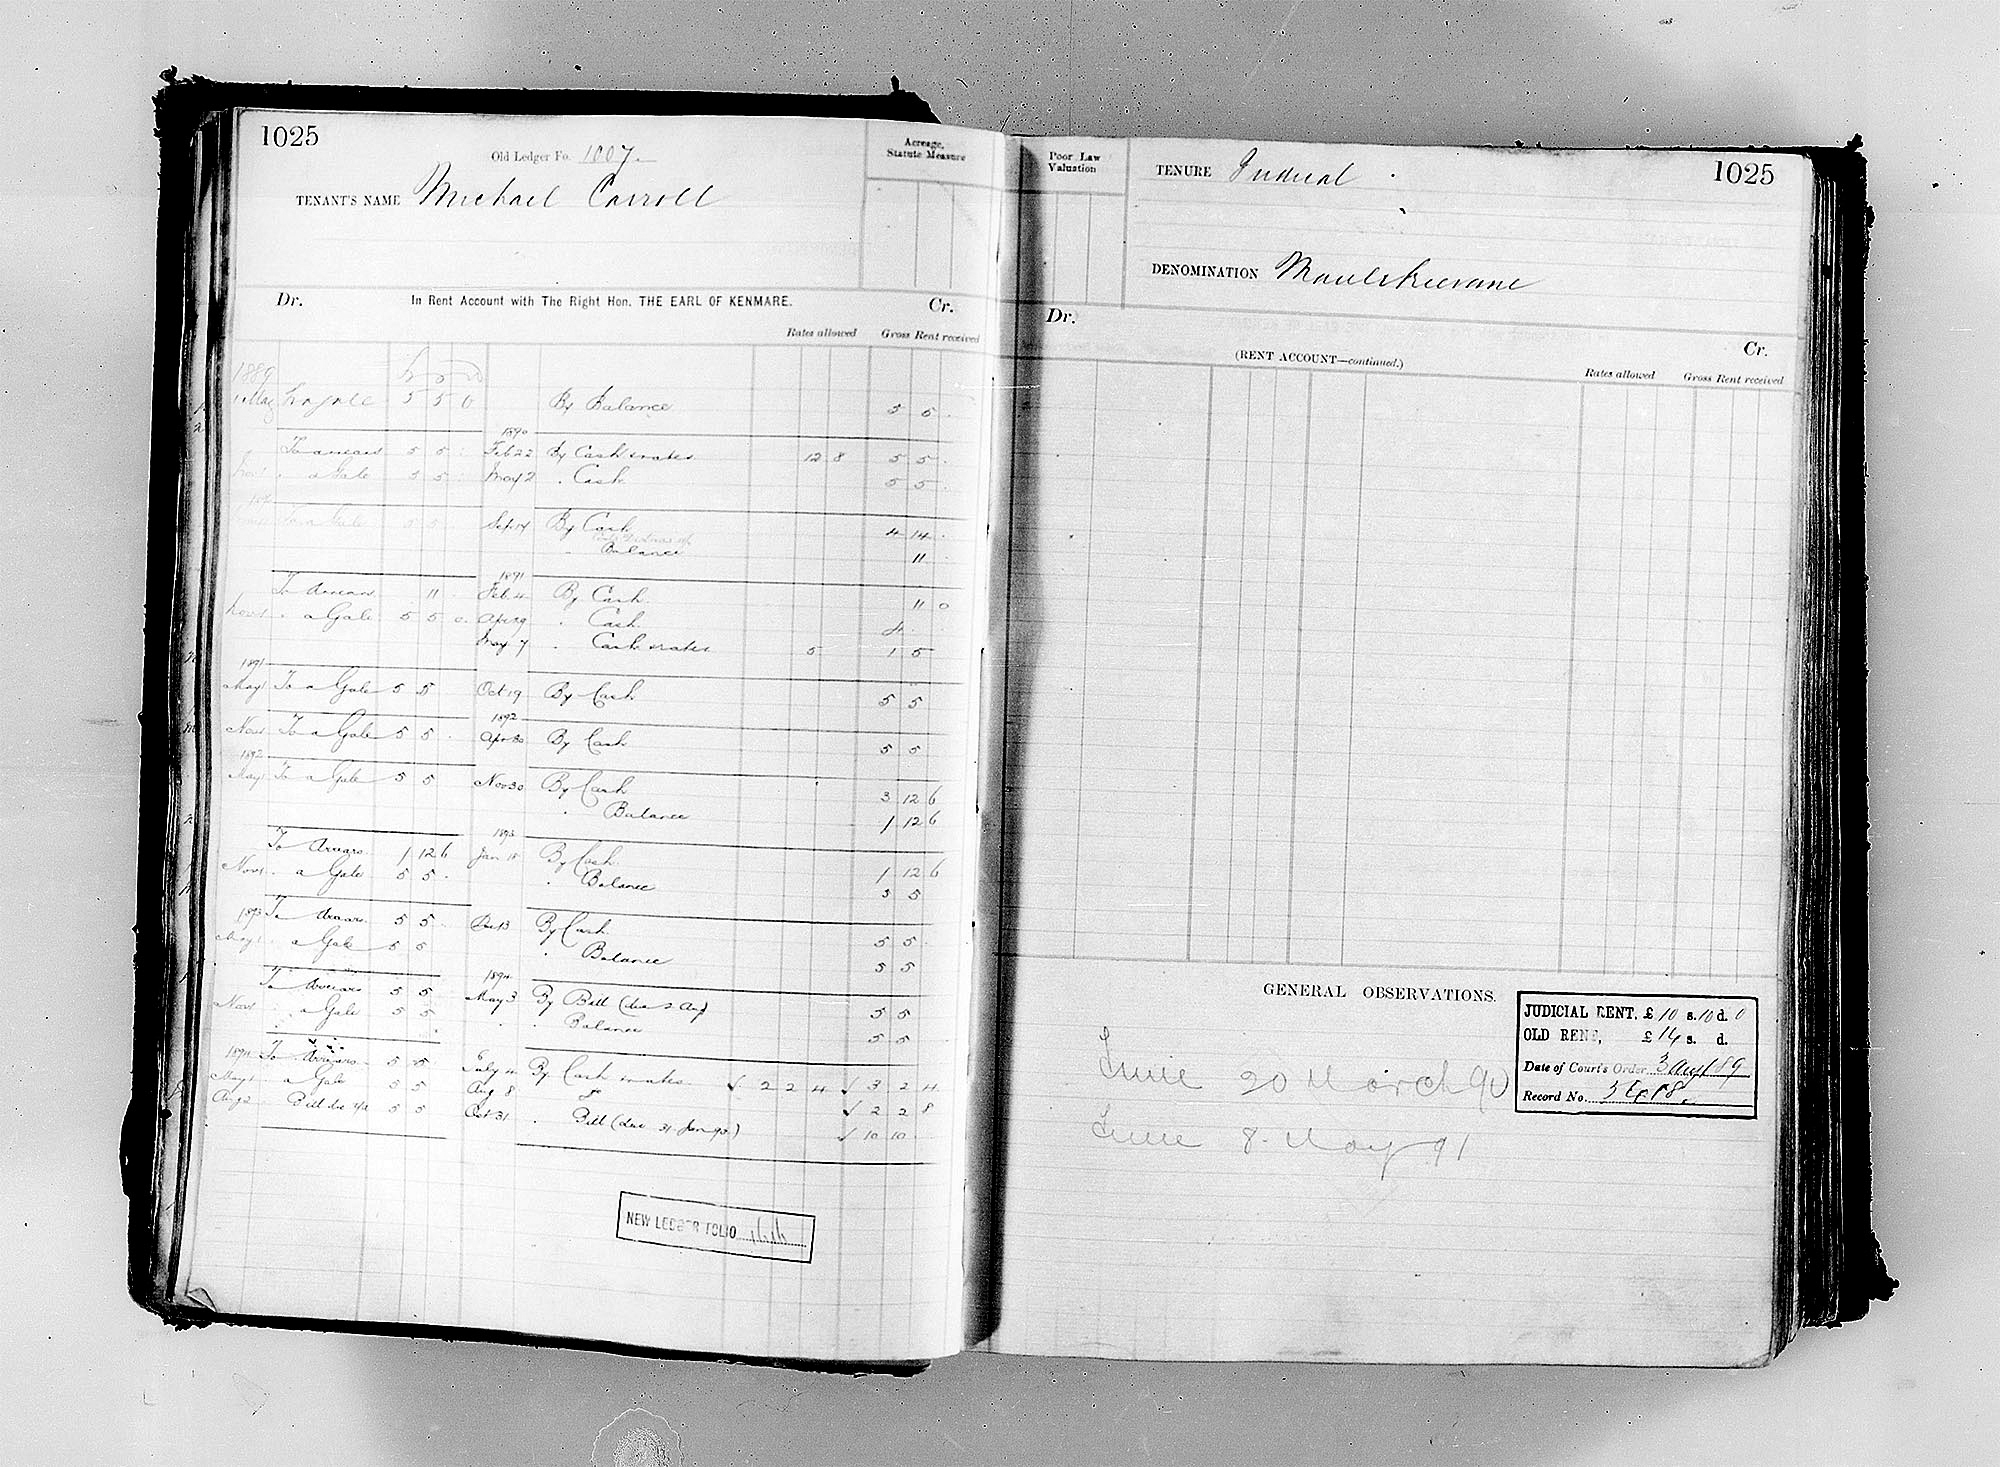 1025
Old Ledger Fo. 1007
TENANT'S NAME Michael Carroll
Acreage, Statute Measure
Dr. In Rent Account with The Right Hon. THE EARL OF KENMARE. Cr.
Rates allowed Gross Rent received
1889
1 May 5 5 0 By Balance 5 5
1890
To arrears 5 5 Feb 22 By Cash & rates 12 8 5 5
Nov 1 " a Gale 5 5 May 2 " Cash 5 5
To a Gale 5 5 Sept 14 By Cash 4 14
Balance 11
1891
To Arrears 11 Feb 4 By Cash 11 0
Nov 1 " a Gale 5 5 0 Apr 29 " Cash 4
May 7 " Cash & rates 5 1 5
1891
May 1 To a Gale 5 5 Oct 19 By Cash 5 5
1892
Nov 1 To a Gale 5 5 Apr 30 By Cash 5 5
1892
May 1 To a Gale 5 5 Nov 30 By Cash 3 12 6
" Balance 1 12 6
1893
To Arrears 1 12 6 Jan 18 By Cash 1 12 6
Nov 1 " a Gale 5 5 " Balance 5 5
1893 To Arrears 5 5 Dec 13 By Cash 5 5
May 1 " a Gale 5 5 " Balance 5 5
1894
To Arrears 5 5 May 3 By Bill (due 2 Aug) 5 5
Nov 1 " a Gale 5 5 " " Balance 5 5
1894 To Arrears 5 5 July 4 By Cash & rates 2 2 4 3 2 4
May 1 " a Gale 5 5 Aug 8 2 2 8
Aug 2 " Bill due 5 5 Oct 31 " Bill (due 31 Jan 95) 10 10
NEW LEDGER FOLIO
Poor Law Valuation
TENURE Judicial
1025
DENOMINATION
Dr. (RENT ACCOUNT—continued.) Cr.
Rates allowed Gross Rent received
GENERAL OBSERVATIONS.
JUDICIAL RENT, £10 s. 10 d. 0
OLD RENT, £14 s. d.
Date of Court's Order 3 Augt 89
Record No.
20 March 90
8 May 91